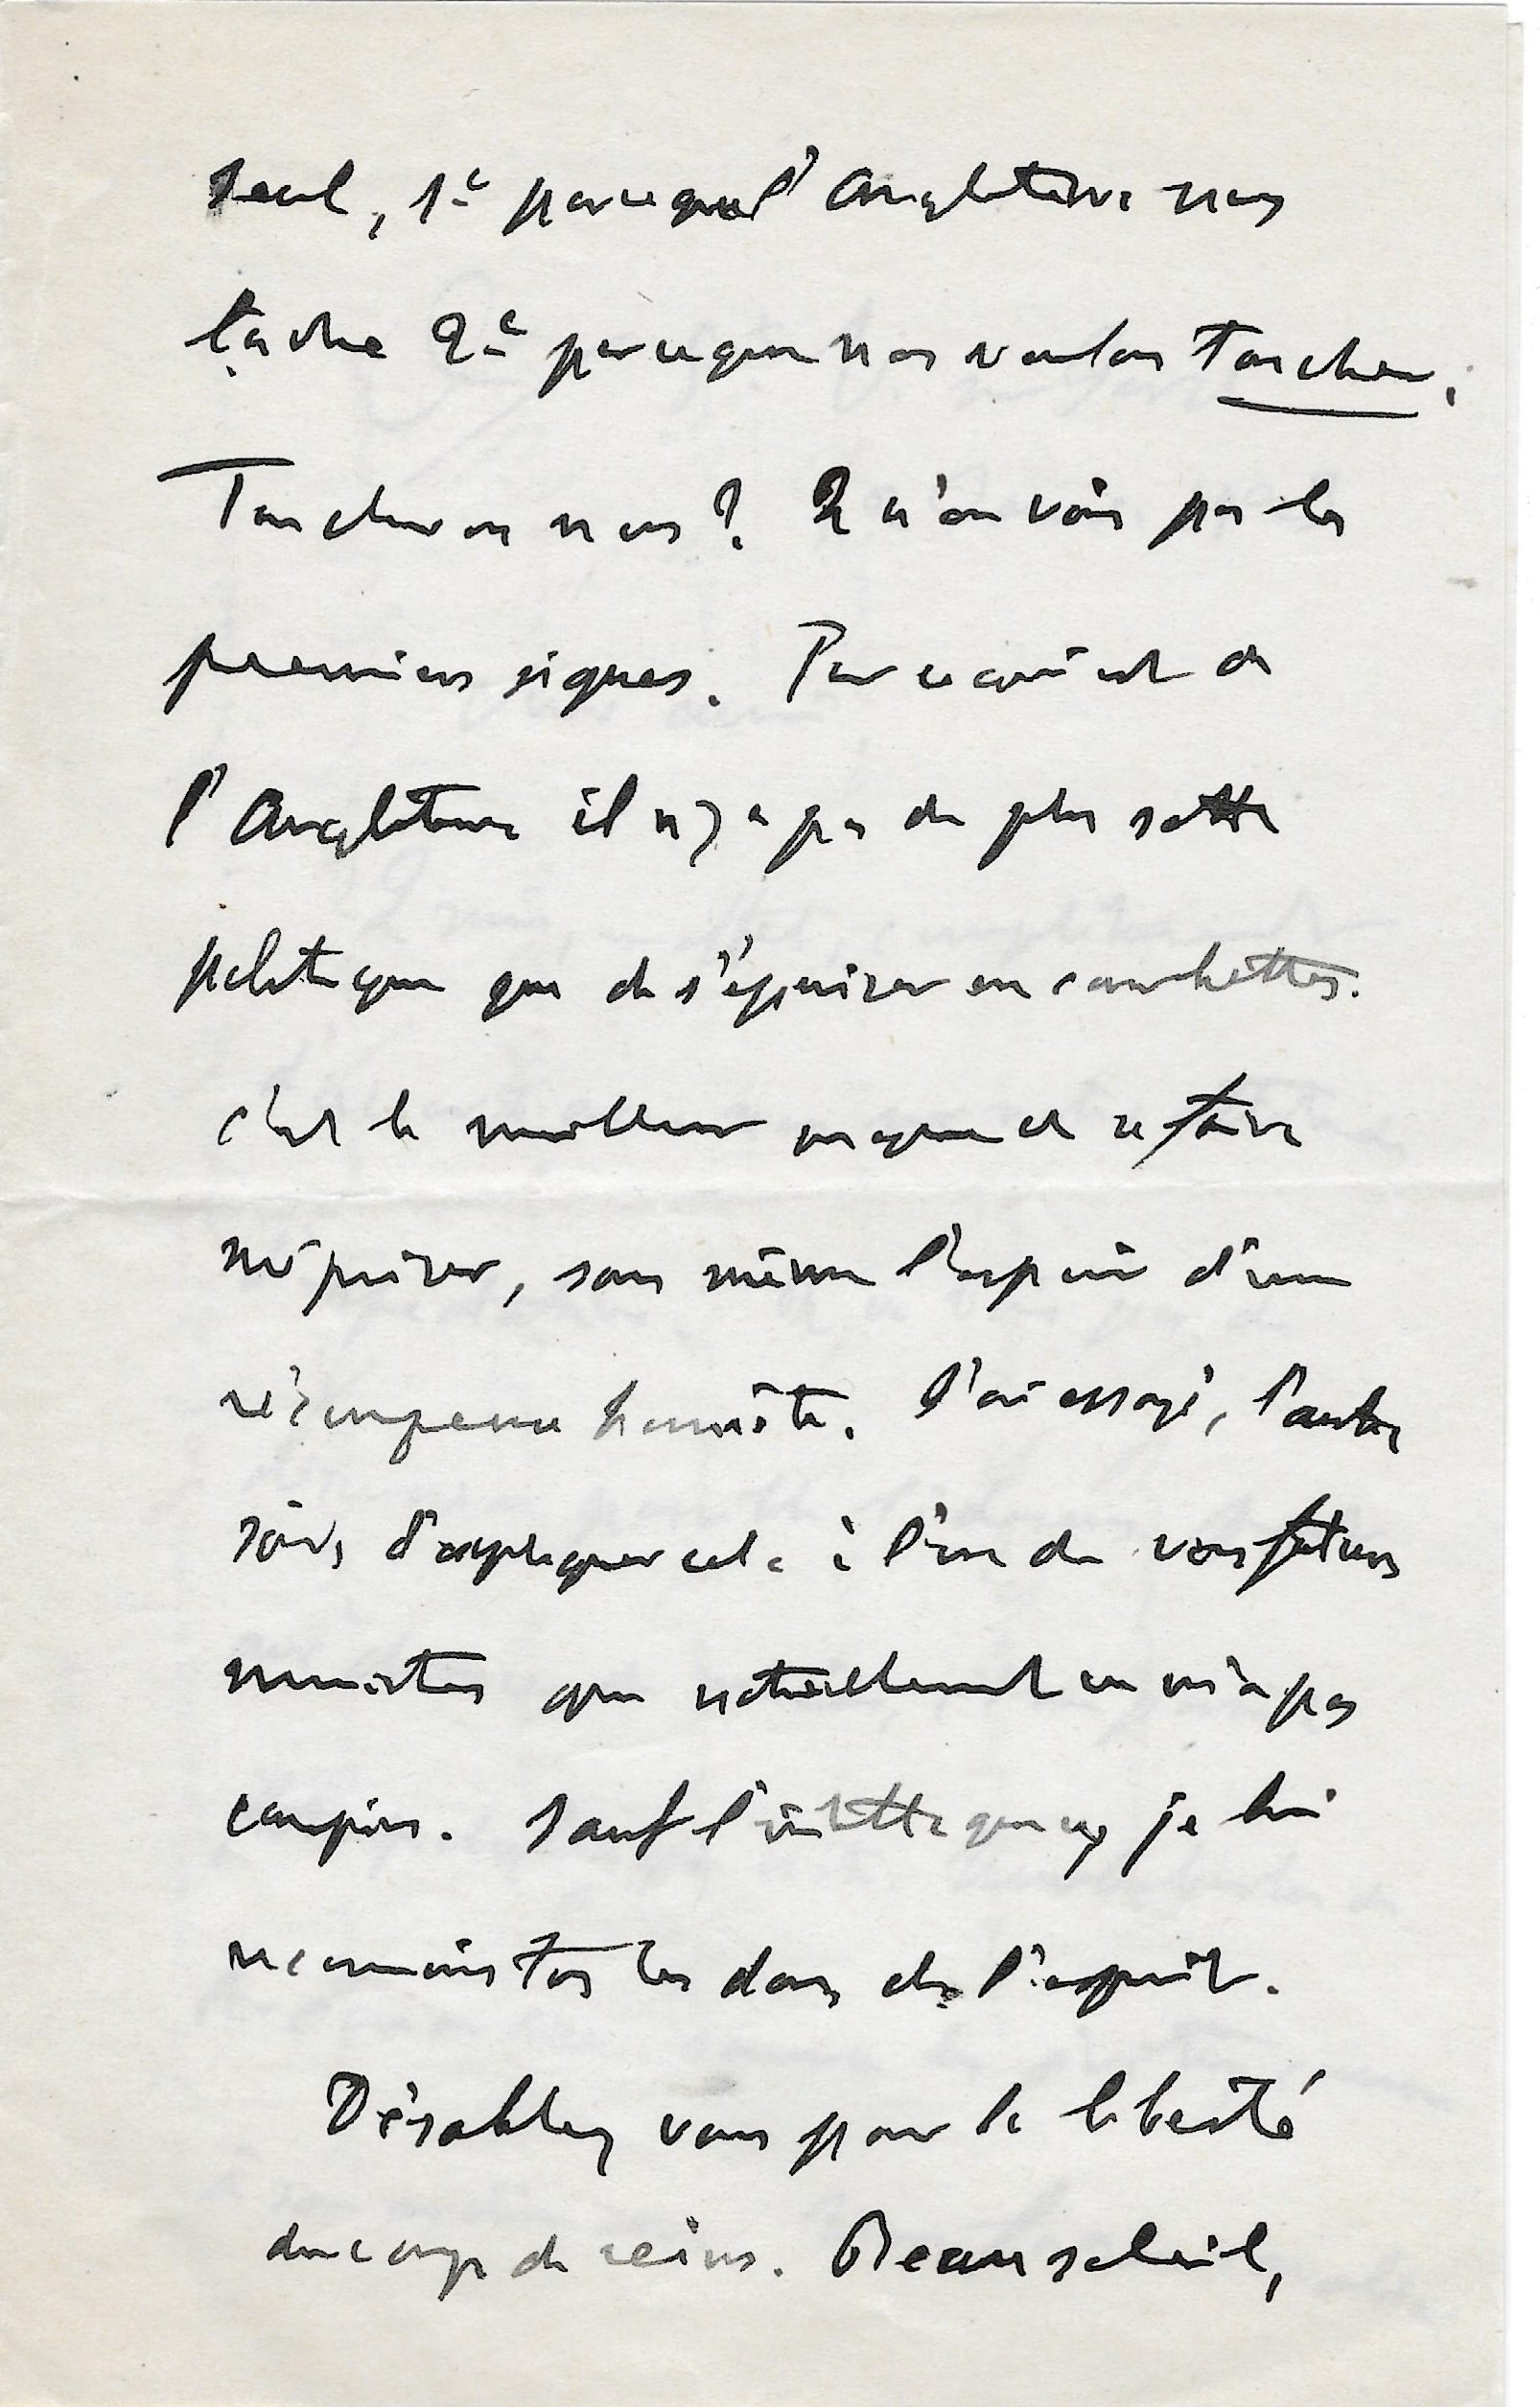 seul, 1° parce que l'Angleterre nous
lâche 2° parce que nous voulons toucher.
Toucherons nous? Je n'en vois pas les
premiers signes. Pour ce qui est de
l'Angleterre il n'y a pas de plus sotte
politique que de s'épuiser en courbettes.
C'est le meilleur moyen de se faire
mépriser, sans même l'espoir d'une
récompense honnête. J'ai essayé, l'autre
soir, d'expliquer cela à l'un de vos futurs
ministres qui naturellement ne m'a pas
compris. Sauf l'
je lui
reconnais tous les dons de l'esprit.
vous pour la liberté
du coup de reins. Beau soleil,